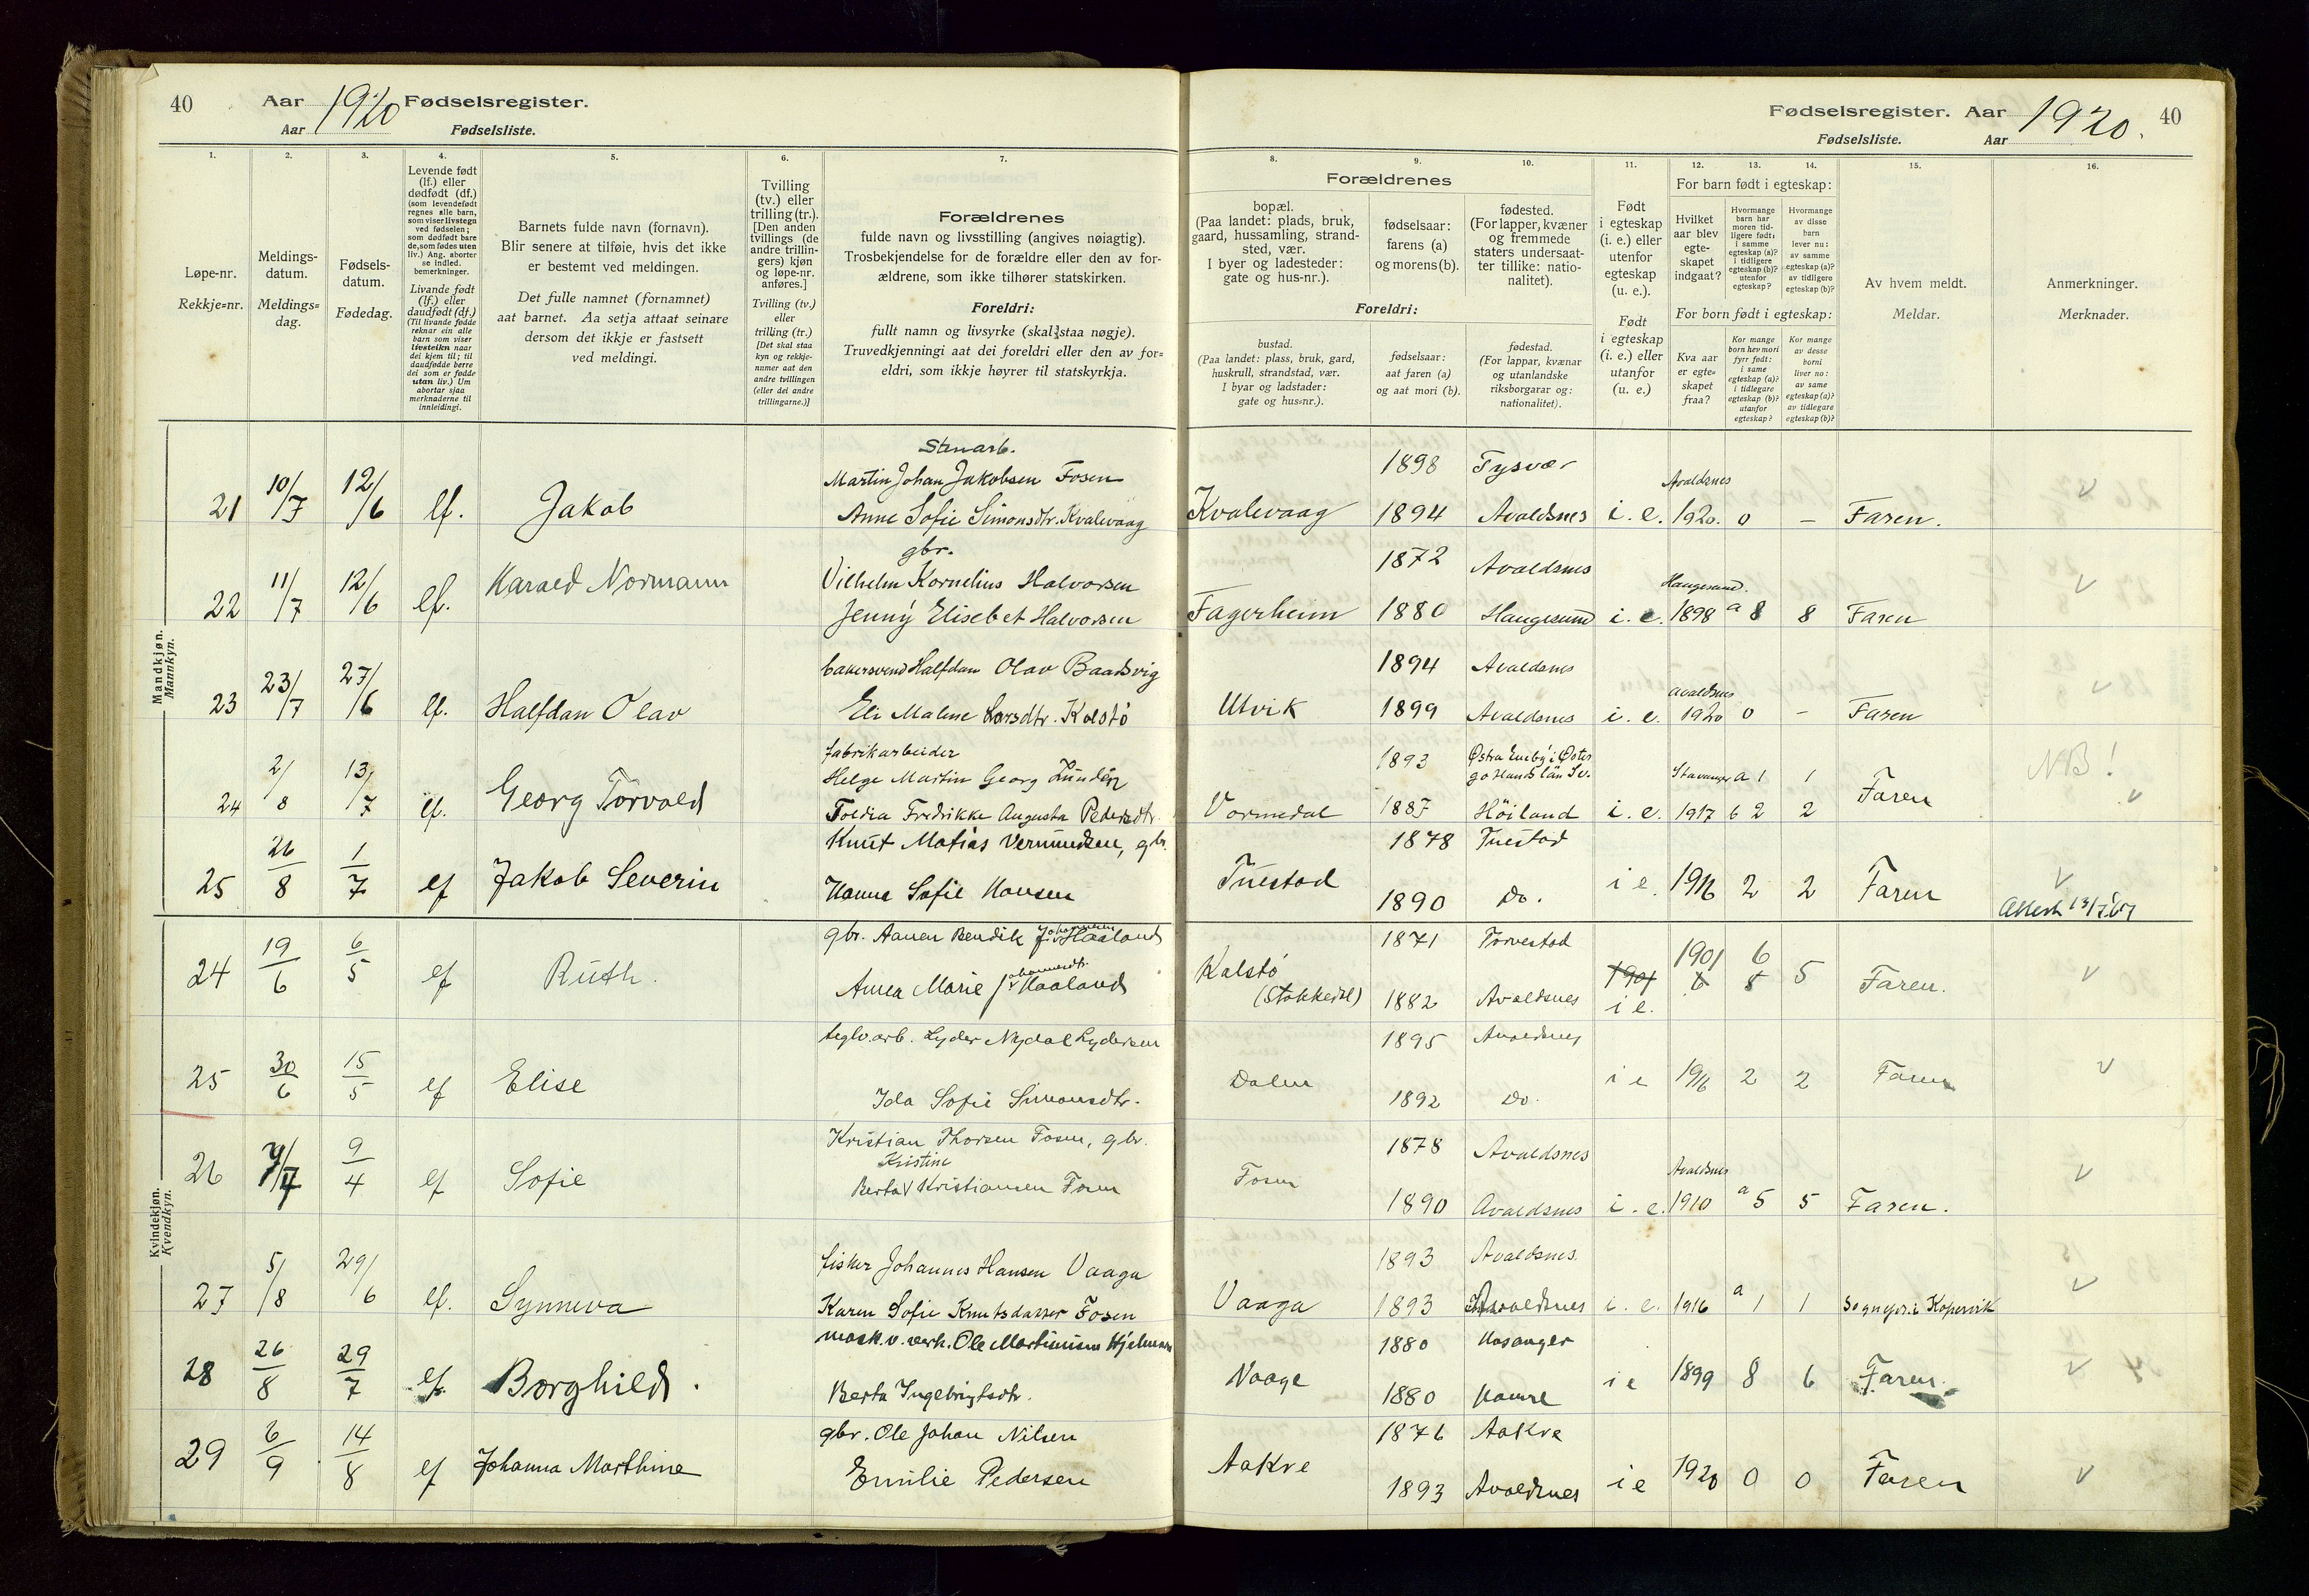 40 Aar 1920 Fødselsregister.
Aar Fødselsliste.
Fødselsregister. Aar 1920. 40
Fødselsliste. Aar
1. 2. 3. 4. 5. 6. 7. 8. 9. 10. 11. 12. 13. 14. 15. 16.
Løpe-nr.
Rekkje=nr.
Meldings-
datum.
Meldings=
dag.
Fødsels-
datum.
Fødedag.
Levende født
(lf.) eller
dødfødt (df.)
(som levendefødt
regnes alle barn,
som viser livstegn
ved fødselen;
som dødfødt bare
de, som fødes uten
liv.) Ang. aborter
se indled.
bemerkninger.
Livande født
(lf.) eller
daudfødt (df.)
(Til livande fødde
reknar ein alle
barn som viser
livsteikn naar
dei kjem til; til
daudfødde berre
dei som er fødde
utan liv.) Um
abortar sjaa
merknaderne til
innleidingi.
Barnets fulde navn (fornavn).
Blir senere at tilføie, hvis det ikke
er bestemt ved meldingen.
Det fulle namnet (fornamnet)
aat barnet. Aa setja attaat seinare
dersom det ikkje er fastsett
ved meldingi.
Tvilling
(tv.) eller
trilling (tr.).
[Den anden
tvillings (de
andre trillin-
gers) kjøn
og løpe-nr.
anføres.]
Tvilling (tv.)
eller
trilling (tr.)
[Det skal staa
kyn og rekkje-
numer aat den
andre tvillingen
(eller dei andre
trillingarne.)]
Forældrenes
fulde navn og livsstilling (angives nøiagtig).
Trosbekjendelse for de forældre eller den av for-
ældrene, som ikke tilhører statskirken.
Foreldri:
fullt namn og livsyrke (skal staa nøgje).
Truvedkjenningi aat dei foreldri eller den av for=
eldri, som ikkje høyrer til statskyrkja.
Forældrenes
bopæl.
(Paa landet: plads, bruk,
gaard, hussamling, strand-
sted, vær.
I byer og ladesteder:
gate og hus-nr.).
fødselsaar:
farens (a)
og morens (b).
fødested.
(For lapper, kvæner
og fremmede
staters undersaat-
ter tillike: natio-
nalitet).
Foreldri:
bustad.
(Paa landet: plass, bruk, gard,
huskrull, strandstad, vær.
I byar og ladstader:
gate og hus=nr.).
fødselsaar:
aat faren (a)
og aat mori (b).
fødestad.
(For lappar, kvænar
og utanlandske
riksborgarar og:
nationalitet).
Født
i egteskap
(i. e.) eller
utenfor
egteskap
(u. e.).
Født
i egteskap
(i. e.) eller
utanfor
(u. e.)
For barn født i egteskap:
Hvilket
aar blev
egte-
skapet
indgaat?
Hvormange
barn har
moren tid-
ligere født:
i samme
egteskap (a)?
i tidligere
egteskap (b)?
utenfor
egteskap?
Hvormange
av disse
barn
lever nu:
av samme
egteskap (a)?
av tidligere
egteskap (b)?
For born født i egteskap:
Kva aar
er egte=
skapet
fraa?
Kor mange
born hev mori
fyrr født:
i same
egteskap (a)?
i tidlegare
egteskap (b)?
utanfor
egteskap?
Kor mange
av desse
borni
liver no:
av same
egteskap (a)?
av tidlegare
egteskap (b)?
Av hvem meldt.
Meldar.
Anmerkninger.
Merknader.
Mandkjøn.
Mannkyn.
Stenarb.
Martin Johan Jakobsen Fosen 1898 Tysvær Avaldsnes
21 10/7 12/6 lf. Jakob Anne Sofie Simonsdtr. Kvalevaag Kvalevaag 1894 Avaldsnes i. e. 1920. 0 – Faren. v
gbr.
Harald Normann Vilhelm Kornelius Halvorsen 1872 Avaldsnes Haugesund. v
22 11/7 12/6 lf. Jenny Elisebet Halvorsen Fagerheim 1880 Haugesund i. e. 1898 a 8 8 Faren
bakersvend Halfdan Olav Baadsvig 1894 Avaldsnes Avaldsnes
23 23/7 27/6 lf. Halfdan Olav Eli Maline Larsdtr. Kolstö Utvik 1899 Avaldsnes i. e. 1920 0 – Faren v
fabrikarbeider
Helge Martin Georg Lundén 1893 Østra Eneby i Øster
götlands län Sv. Stavanger a 1 1 NB!
24 2/8 13/7 lf. Georg Torvald Toldia Fredrikke Augusta Pedersdtr. Vormedal 1887 Höiland i. e. 1917 b 2 2 Faren v
Knut Matias Vermundsen, gbr. 1878 Tuestad
25 26/8 1/7 lf Jakob Severin Hanna Sofie Hansen Tuestad 1890 Do. i e. 1916 2 2 Faren v
Attest 13/7.67
Kvindekjøn.
Kvendkyn.
gbr. Aanen Bendik Johannesen Haaland 1871 Torvestad 1901 6
24 19/6 6/5 lf Ruth. Anna Marie Johannesdtr. Haaland Kalstö
(Stokkedal) 1882 Avaldsnes 1901 i e. 6 8 5 Faren. v
teglv.arb. Lyder Nydal Lydersen 1895 Avaldsnes
25 30/6 15/5 lf Elise Ida Sofie Simonsdtr. Dalen 1892 Do. i e 1916 2 2 Faren v
Kristian Thorsen Fosen, gbr. 1878 Avaldsnes Avaldsnes
Kristine
26 9/7 9/4 lf Sofie Berta Kristiansen Fosen Fosen 1890 Avaldsnes i. e. 1910 a 5 5 Faren. v
fisker Johannes Hansen Vaage 1893 Avaldsnes.
27 5/8 29/6 lf. Synneva Karen Sofie Knutsdatter Fosen Vaaga 1893 Avaldsnes i. e. 1916 a 1 1 Sognepr. i Kopervik v
mask. v. verk. Ole Martinsen Hjelmaas 1880 Hosanger
28 26/8 29/7 lf. Borghild. Berta Ingebrigtsdtr. Vaage 1880 Hamre i e 1899 8 6 Faren. v
gbr. Ole Johan Nilsen 1876 Aakre
29 6/9 14/8 lf Johanna Marthine Emilie Pedersen Aakre 1893 Avaldsnes i e 1920 0 0 Faren v